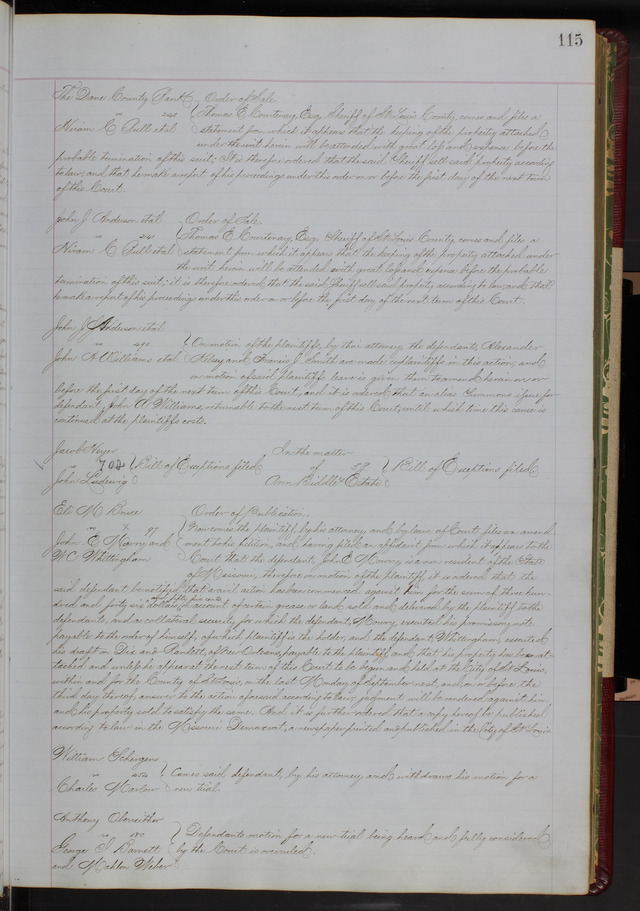 115
The Dane County Bank } Order of Sale
vs 240 } Thomas E. Courtenay, Esq. Sheriff of St. Louis County, comes and files a
Hiram C. Bull et al } statement from which it appears that the keeping of the property attached
under the writ herein will be attended with great loss and expense before the
probable termination of this suit; It is therefore ordered that the said Sheriff sell said property according
to law, and that he make a report of his proceedings under this order on or before the first day of the next term
of this Court.
John J. Anderson et al } Order of Sale.
vs 241 } Thomas E. Courtenay, Esq. Sheriff of St. Louis County, comes and files a
Hiram C. Bull et al } statement from which it appears that the keeping of the property attached under
the writ herein will be attended with great loss and expense before the probable
termination of this suit; it is therefore ordered that the said Sheriff sell said property according to law, and that
he make a report of his proceedings under this order on or before the first day of the next term of this Court.
John J. Anderson et al
vs } On motion of the plaintiffs, by their attorney, the defendants, Alexander
John A. Williams et al } Kelsey and Francis J. Smith are made coplaintiffs in this action, and
on motion of said plaintiffs leave is given them to amend herein on or
before the first day of the next term of this Court, and it is ordered that an alias Summons issue for
defendant, John A. Williams, returnable to the next term of this Court, until which time this cause is
continued at the plaintiffs costs.
Jacob Heyer In the matter
vs 702 } Bill of Exceptions filed of 58 } Bill of Exceptions filed
John Ludewig Ann Biddle's Estate
Eli M. Bruce } Order of Publication.
vs 97 } Now comes the plaintiff by his attorney and by leave of Court files an amend
John E. Maury and } ment to his petition, and having filed an affidavit from which it appears to the
W C. Whittingham } Court that the defendant, John E. Maury, is a non resident of the State
of Missouri, therefore on motion of the plaintiff, it is ordered that the
said defendant be notified that a civil action has been commenced against him for the sum of three hun
and fifty five cents
dred and forty six dollars, on account of certain grease or lard sold and delivered by the plaintiff to the
defendants, and as collateral security for which the defendant, Maury, executed his promissory note
payable to the order of himself, of which plaintiff is the holder, and the defendant, Whittingham, executed
his draft on Dix and of New Orleans, payable to the plaintiff and that his property has been at
tached and unless he appear at the next term of this Court to be begun and held at the City of St. Louis,
within and for the County of St. Louis, on the last Monday of September next, and on or before the
third day thereof, answer to the action aforesaid according to law, judgment will be rendered against him,
and his property sold to satisfy the same. And it is further ordered that a copy hereof be published
according to law in the Missouri Democrat, a newspaper printed and published in the City of St. Louis
William Schergens
vs 454 } Comes said defendant, by his attorney, and withdraws his motion for a
Charles Marlow } new trial.
Anthony
vs 180 } Defendants motion for a new trial being heard and fully considered
George I. Barnett } by the Court is overruled.
and Mahlon Weber